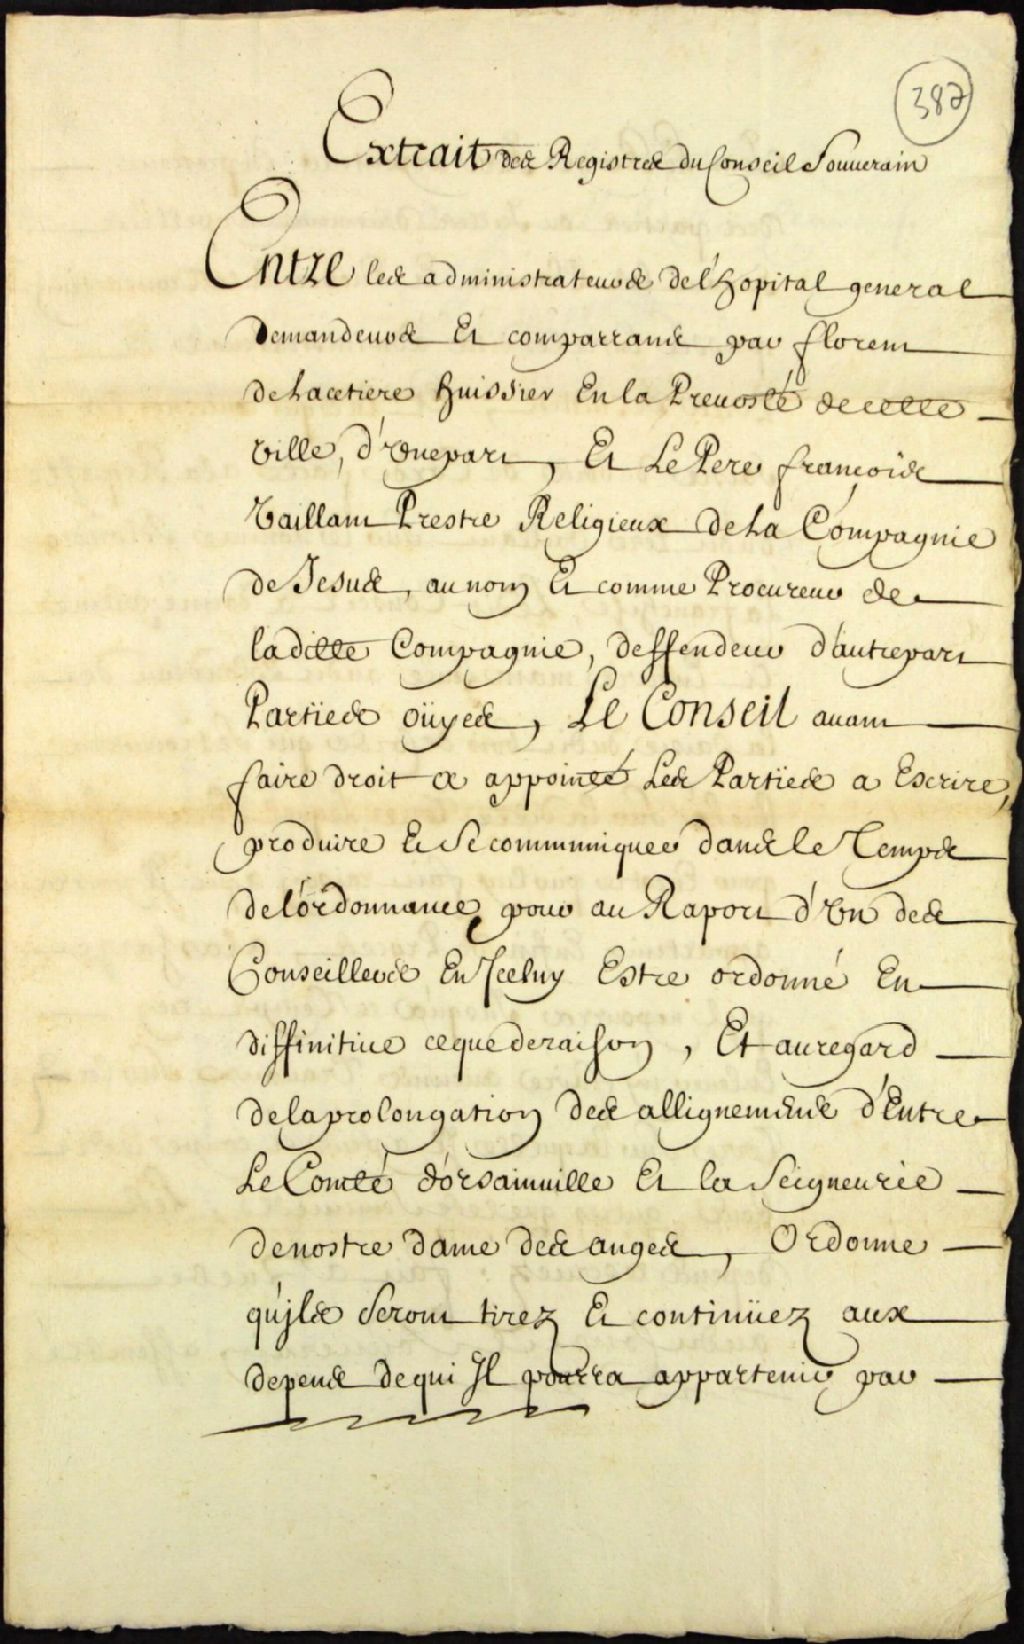 387
Extrait des Registres du Conseil Souuerain
Entre les administrateurs de l'hopital general
demandeurs Et comparrants par florent
de Lacetiere huissier En la Preuosté de cette
ville, d'vne part, Et Le Pere françois
Vaillant Prestre Religieux de La Compagnie
de Jesus, au nom Et comme Procureur de
laditte Compagnie, deffendeur d'autre part
Parties oüyes, Le Conseil auant
faire droit a appointé Les Parties a Escrire,
produire Et Se communiquer dans le Temps
de l'ordonnance, pour au Raport d'vn des
Conseillers En Jceluy Estre ordonné En
diffinitiue ce que de raison, Et au regard
de la prolongation des allignements d'Entre
Le Comté d'orsainuille Et la Seigneurie
de nostre dame des anges, Ordonne
qu'jls Seront tirez Et continüez aux
depens de qui Jl pourra appartenir par